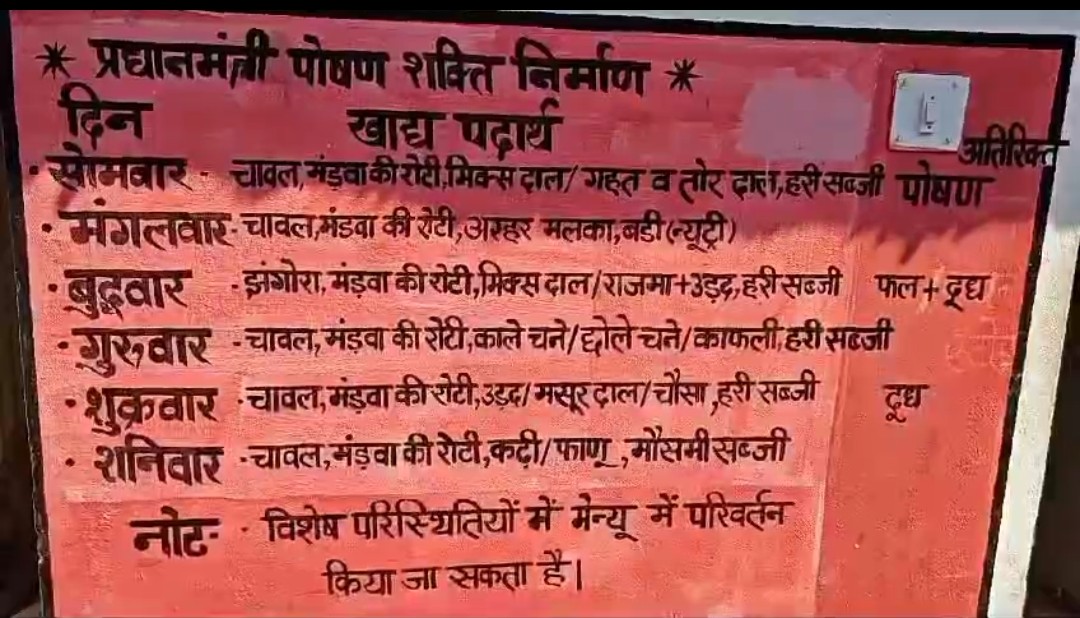 * प्रधानमंत्री पोषण शक्ति निर्माण *
दिन खाद्य पदार्थ अतिरिक्त पोषण
• सोमवार - चावल, मंड़वा की रोटी, मिक्स दाल/ गहत व तोर दाल, हरी सब्जी
• मंगलवार - चावल, मंडवा की रोटी, अरहर मलका, बडी (न्यूट्री)
• बुद्ववार - झंगोरा, मंड़वा की रोटी, मिक्स दाल/राजमा+उड़द, हरी सब्जी फल + दूध
• गुरुवार - चावल, मंड़वा की रोटी, काले चने/छोले चने/काफली, हरी सब्जी
• शुक्रवार - चावल, मंड़वा की रोटी, उड़द/मसूर दाल/चौसा, हरी सब्जी दूध
• शनिवार - चावल, मंड़वा की रोटी, कढ़ी/फाणू, मौसमी सब्जी
नोट - विशेष परिस्थितियों में मेन्यू में परिवर्तन
किया जा सकता है।